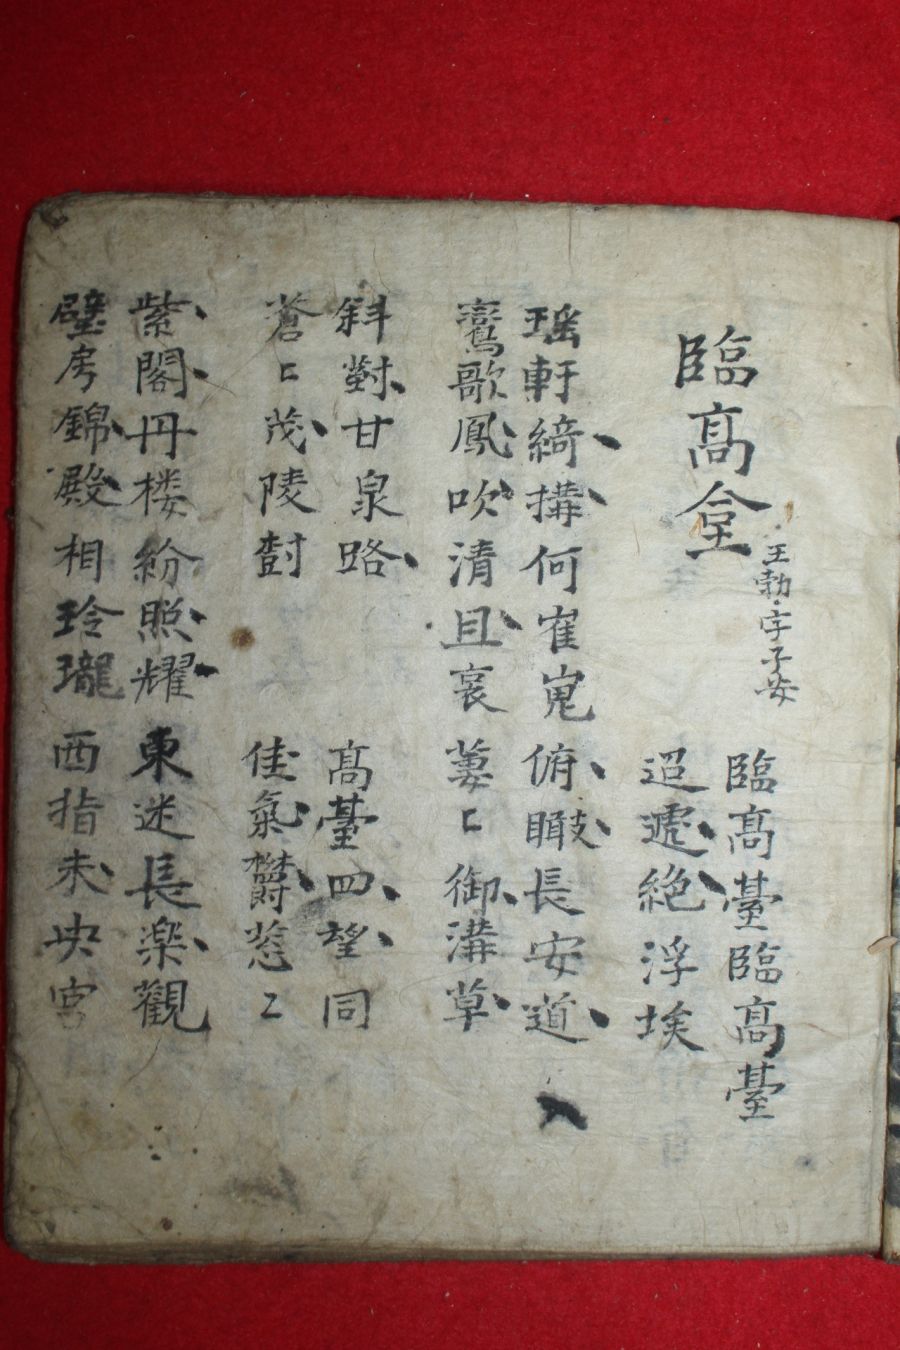 臨髙臺
王勃字子安
臨髙臺臨髙臺
迢遞絶浮埃
瑶軒綺搆何崔嵬
鸞歌鳳吹清且哀
俯瞰長安道
萋々御溝草
斜對甘泉路
蒼々茂陵樹
髙臺四望同
佳氣欝葱々
紫閣丹楼紛照耀
璧房錦殿相玲瓏
東迷長楽觀
西指未央宮